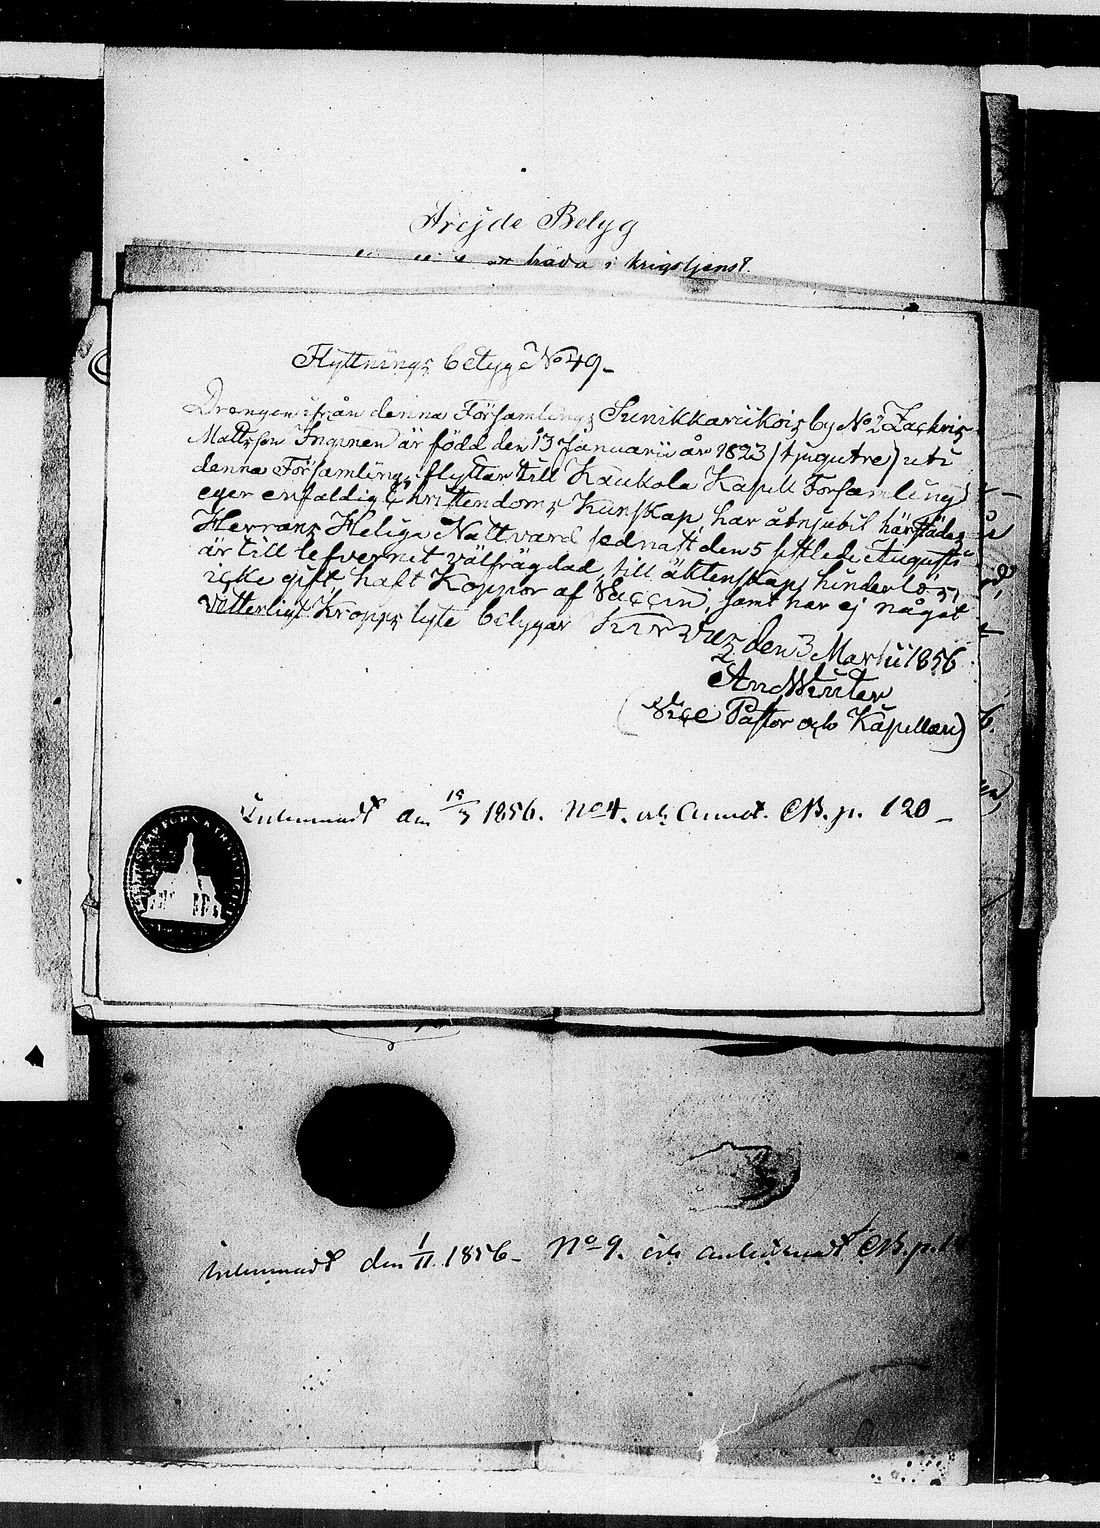 Arejde Betyg
" " " att träda i krigstjenst.
Flyttnings betyg No 49.
Drengen ifrån denna Församlings Sunikkanikois by No 2 Zachris
Mattsson Inginen är född den 13 Januarii år 1823 (tjugutre) uti
denna Församling, flyttar till Kaukola Kapell Församling,
eger enfaldig Christendoms Kunskap, har åtnjutit härstädes
Herrans Heliga Nattvard sednast den 5 sistledne Augusti
är till lefvernet välfrägdad, till äktenskap hinderlös,
icke gift, haft Koppor af Vaccin, samt har ej något
vetterligt Kropps lyte betygar Hirvus den 3 Martii 1856.
And Winter
(Vice Pastor och Kapellan)
Inlemnadt den 15/3 1856. No 4. och Annot. CB. p. 120
Inlemnadt den 1/11 1856 No 9. och antecknadt CB. p.